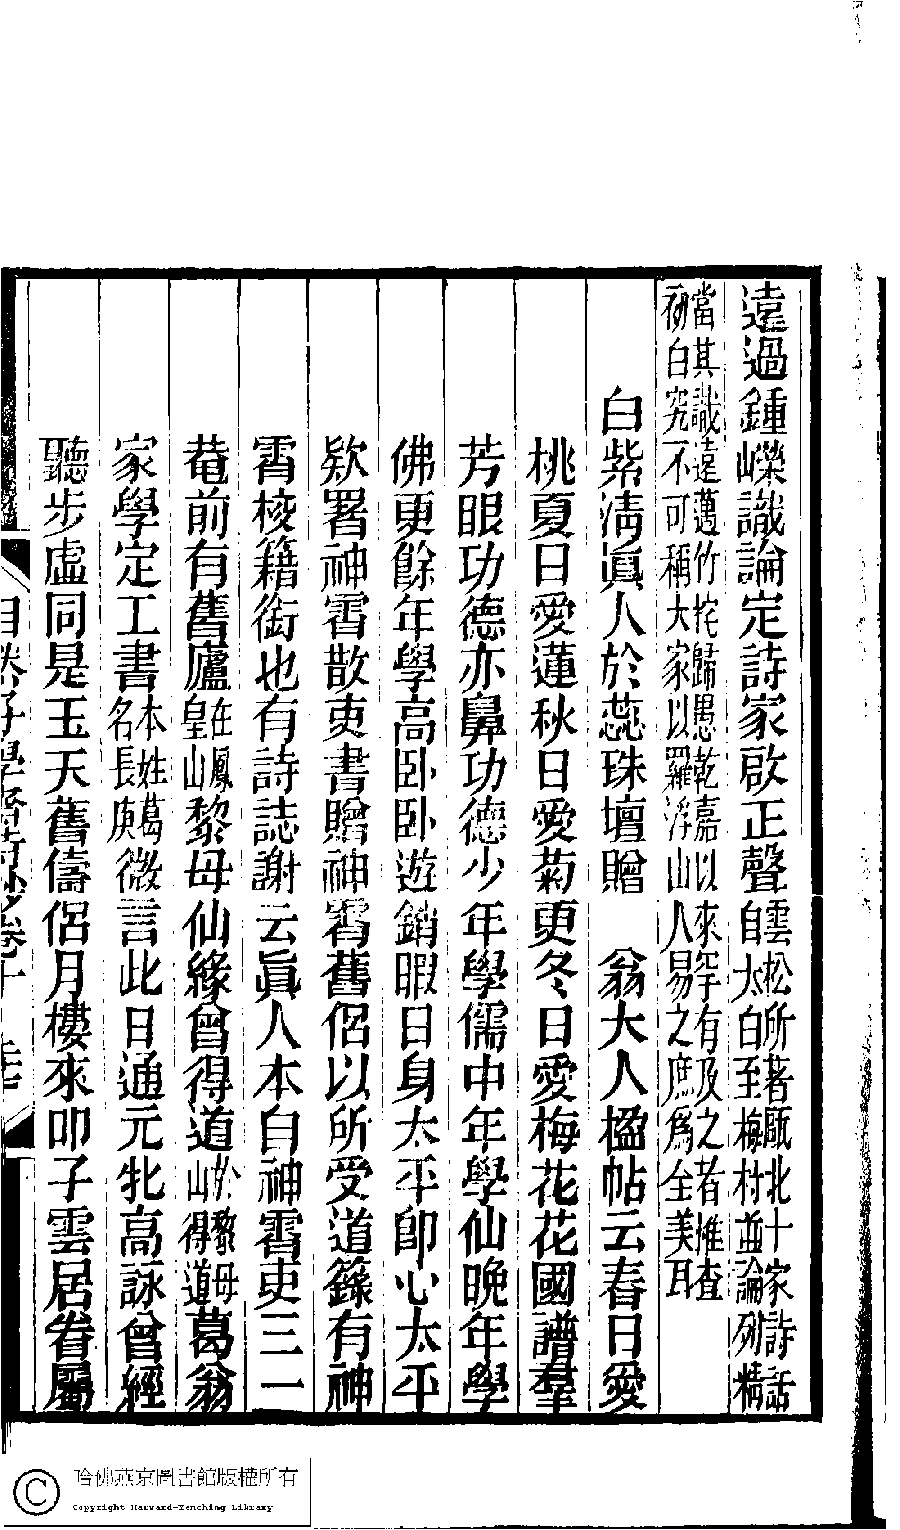 遠過鍾嶸識論定詩家啟正聲雲松所著甌北十家詩話自太白至梅村並論列精
當其識遠邁竹垞歸愚乾嘉以來罕有及之者惟查初白究不可稱大家以羅浮山人易之庶為全美耳
白紫淸眞人於蕊珠壇贈　翁大人楹帖云春日愛
桃夏日愛蓮秋日愛菊更冬日愛梅花花國譜羣
芳眼功德亦鼻功德少年學儒中年學仙晚年學
佛更餘年學高臥臥遊銷暇日身太平卽心太平
欵署神霄散吏書贈神霄舊侶以所受道籙有神
霄校籍銜也有詩誌謝云眞人本自神霄吏三一
菴前有舊廬在鳳皇山黎母仙緣曾得道於黎母山得道葛翁
家學定工書本姓葛名長庚微言此日通元牝高詠曾經
聽步虛同是玉天舊儔侶月樓來叩子雲居眷屬
哈佛燕京圖書館版權所有
Copyright Harvard-Yenching Library